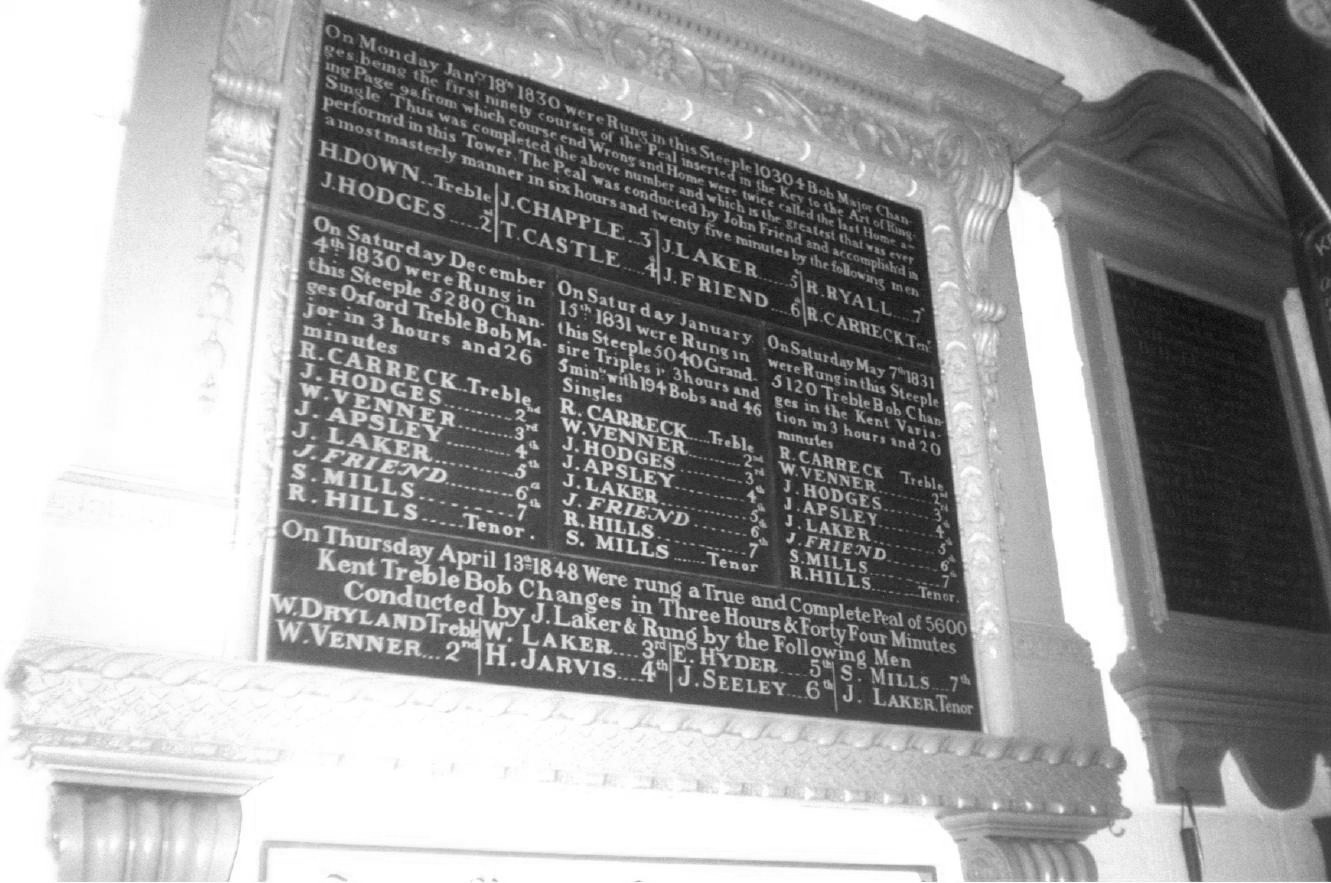 On Monday Jany 18th 1830 were Rung in this Steeple 10304 Bob Major Chan-
ges being the first ninety courses of the Peal inserted in the Key to the Art of Ring-
ing Page 92 from which course end Wrong and Home were twice called the last Home a
Single Thus was completed the above number and which is the greatest that was ever
perform'd in this Tower. The Peal was conducted by John Friend and accomplish'd in
a most masterly manner in six hours and twenty five minutes by the following men
H. DOWN.. Treble J. CHAPPLE... 3d J. LAKER...... 5th R. RYALL.... 7th
J. HODGES..... 2nd T. CASTLE.... 4th J. FRIEND.... 6th R. CARRECK Ten.r
On Saturday December
4th 1830 were Rung in
this Steeple 5280 Chan-
ges Oxford Treble Bob Ma-
jor in 3 hours and 26
minutes
R. CARRECK.. Treble
J. HODGES......... 2nd
W. VENNER......... 3rd
J. APSLEY.......... 4th
J. LAKER........... 5th
J. FRIEND.......... 6th
S. MILLS........... 7th
R. HILLS...... Tenor.
On Saturday January
15th 1831 were Rung in
this Steeple 5040 Grand-
sire Triples in 3 hours and
5 mints with 194 Bobs and 46
Singles
R. CARRECK.... Treble
W. VENNER........ 2nd
J. HODGES........ 3rd
J. APSLEY......... 4th
J. LAKER.......... 5th
J. FRIEND......... 6th
R. HILLS.......... 7th
S. MILLS....... Tenor
On Saturday May 7th 1831
were Rung in this Steeple
5120 Treble Bob Chan-
ges in the Kent Varia-
tion in 3 hours and 20
minutes
R. CARRECK Treble
W. VENNER........ 2nd
J. HODGES........ 3rd
J. APSLEY......... 4th
J. LAKER.......... 5th
J. FRIEND......... 6th
S. MILLS.......... 7th
R. HILLS....... Tenor.
On Thursday April 13th 1848 Were rung a True and Complete Peal of 5600
Kent Treble Bob Changes in Three Hours & Forty Four Minutes
Conducted by J. Laker & Rung by the Following Men
W. DRYLAND Treble W. LAKER.... 3rd E. HYDER..... 5th S. MILLS... 7th
W. VENNER... 2nd H. JARVIS.... 4th J. SEELEY... 6th J. LAKER. Tenor